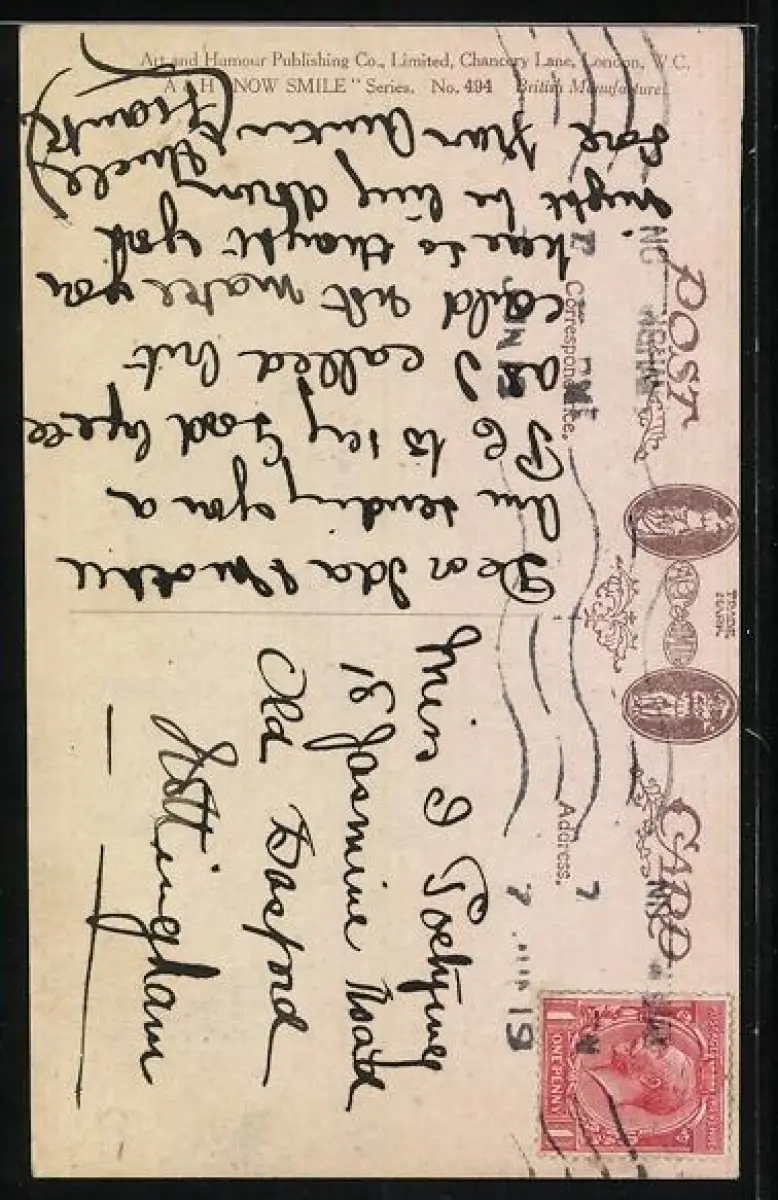 Art and Humour Publishing Co., Limited, Chancery Lane, London, W.C.
A & H "NOW SMILE" Series. No. 494 British Manufacture.
POST CARD
TRADE MARK.
Correspondence.
Address.
Dear Ida & Mother
Am sending you a
PC to say Good byeee
as I called but
could not make you
hear so thought you
might be lying down
Love from Auntie &
Uncle
Frank
Miss I
18 Jasmine Road
Old Basford
Nottingham
7
19
ONE PENNY